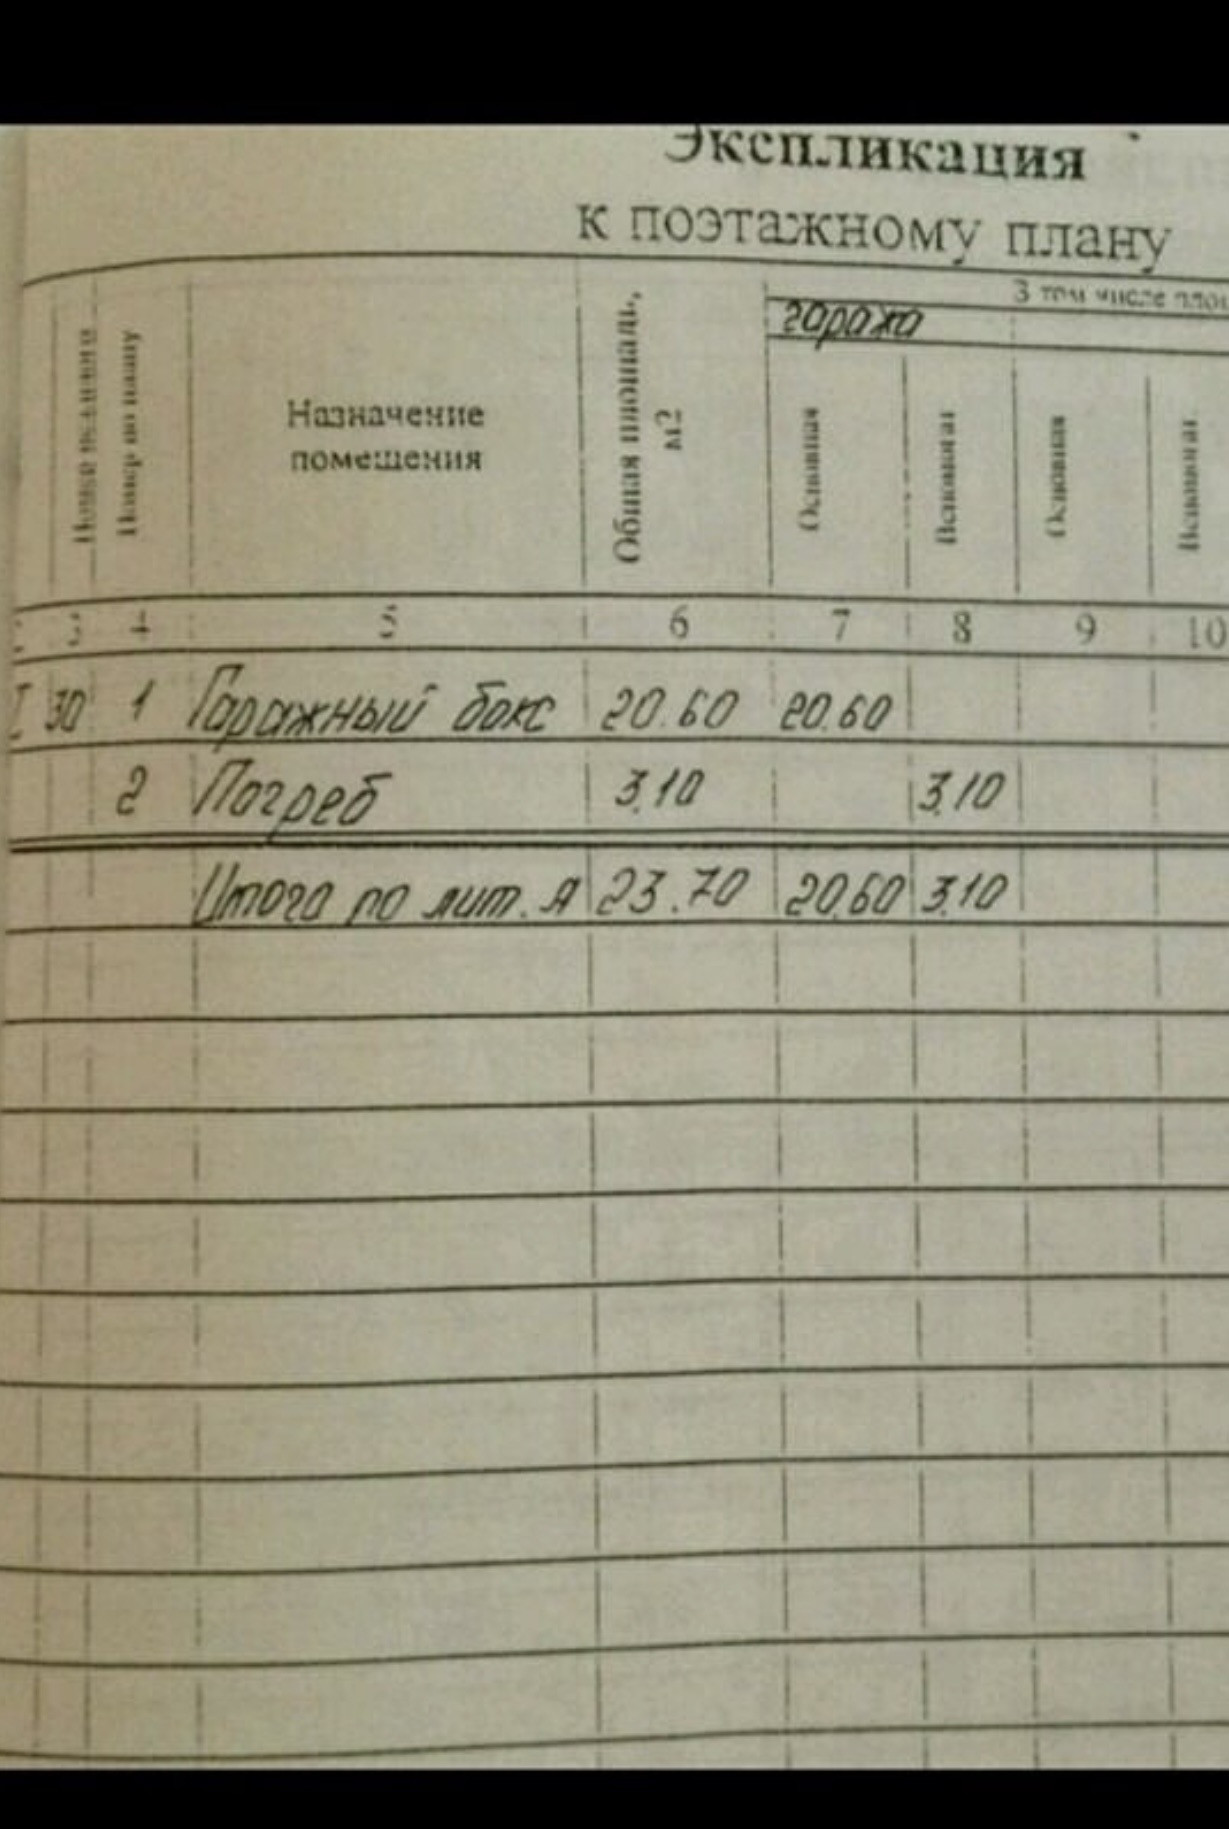 Экспликация
к поэтажному плану
В том числе площ
гаража
Номер по плану
Назначение
помещения
Общая площадь,
м2
Основная
Вспомогат.
Основная
Вспомогат.
3 4 5 6 7 8 9 10
I 30 1 Гаражный бокс 20.60 20.60
2 Погреб 3.10 3.10
Итого по лит. А 23.70 20.60 3.10